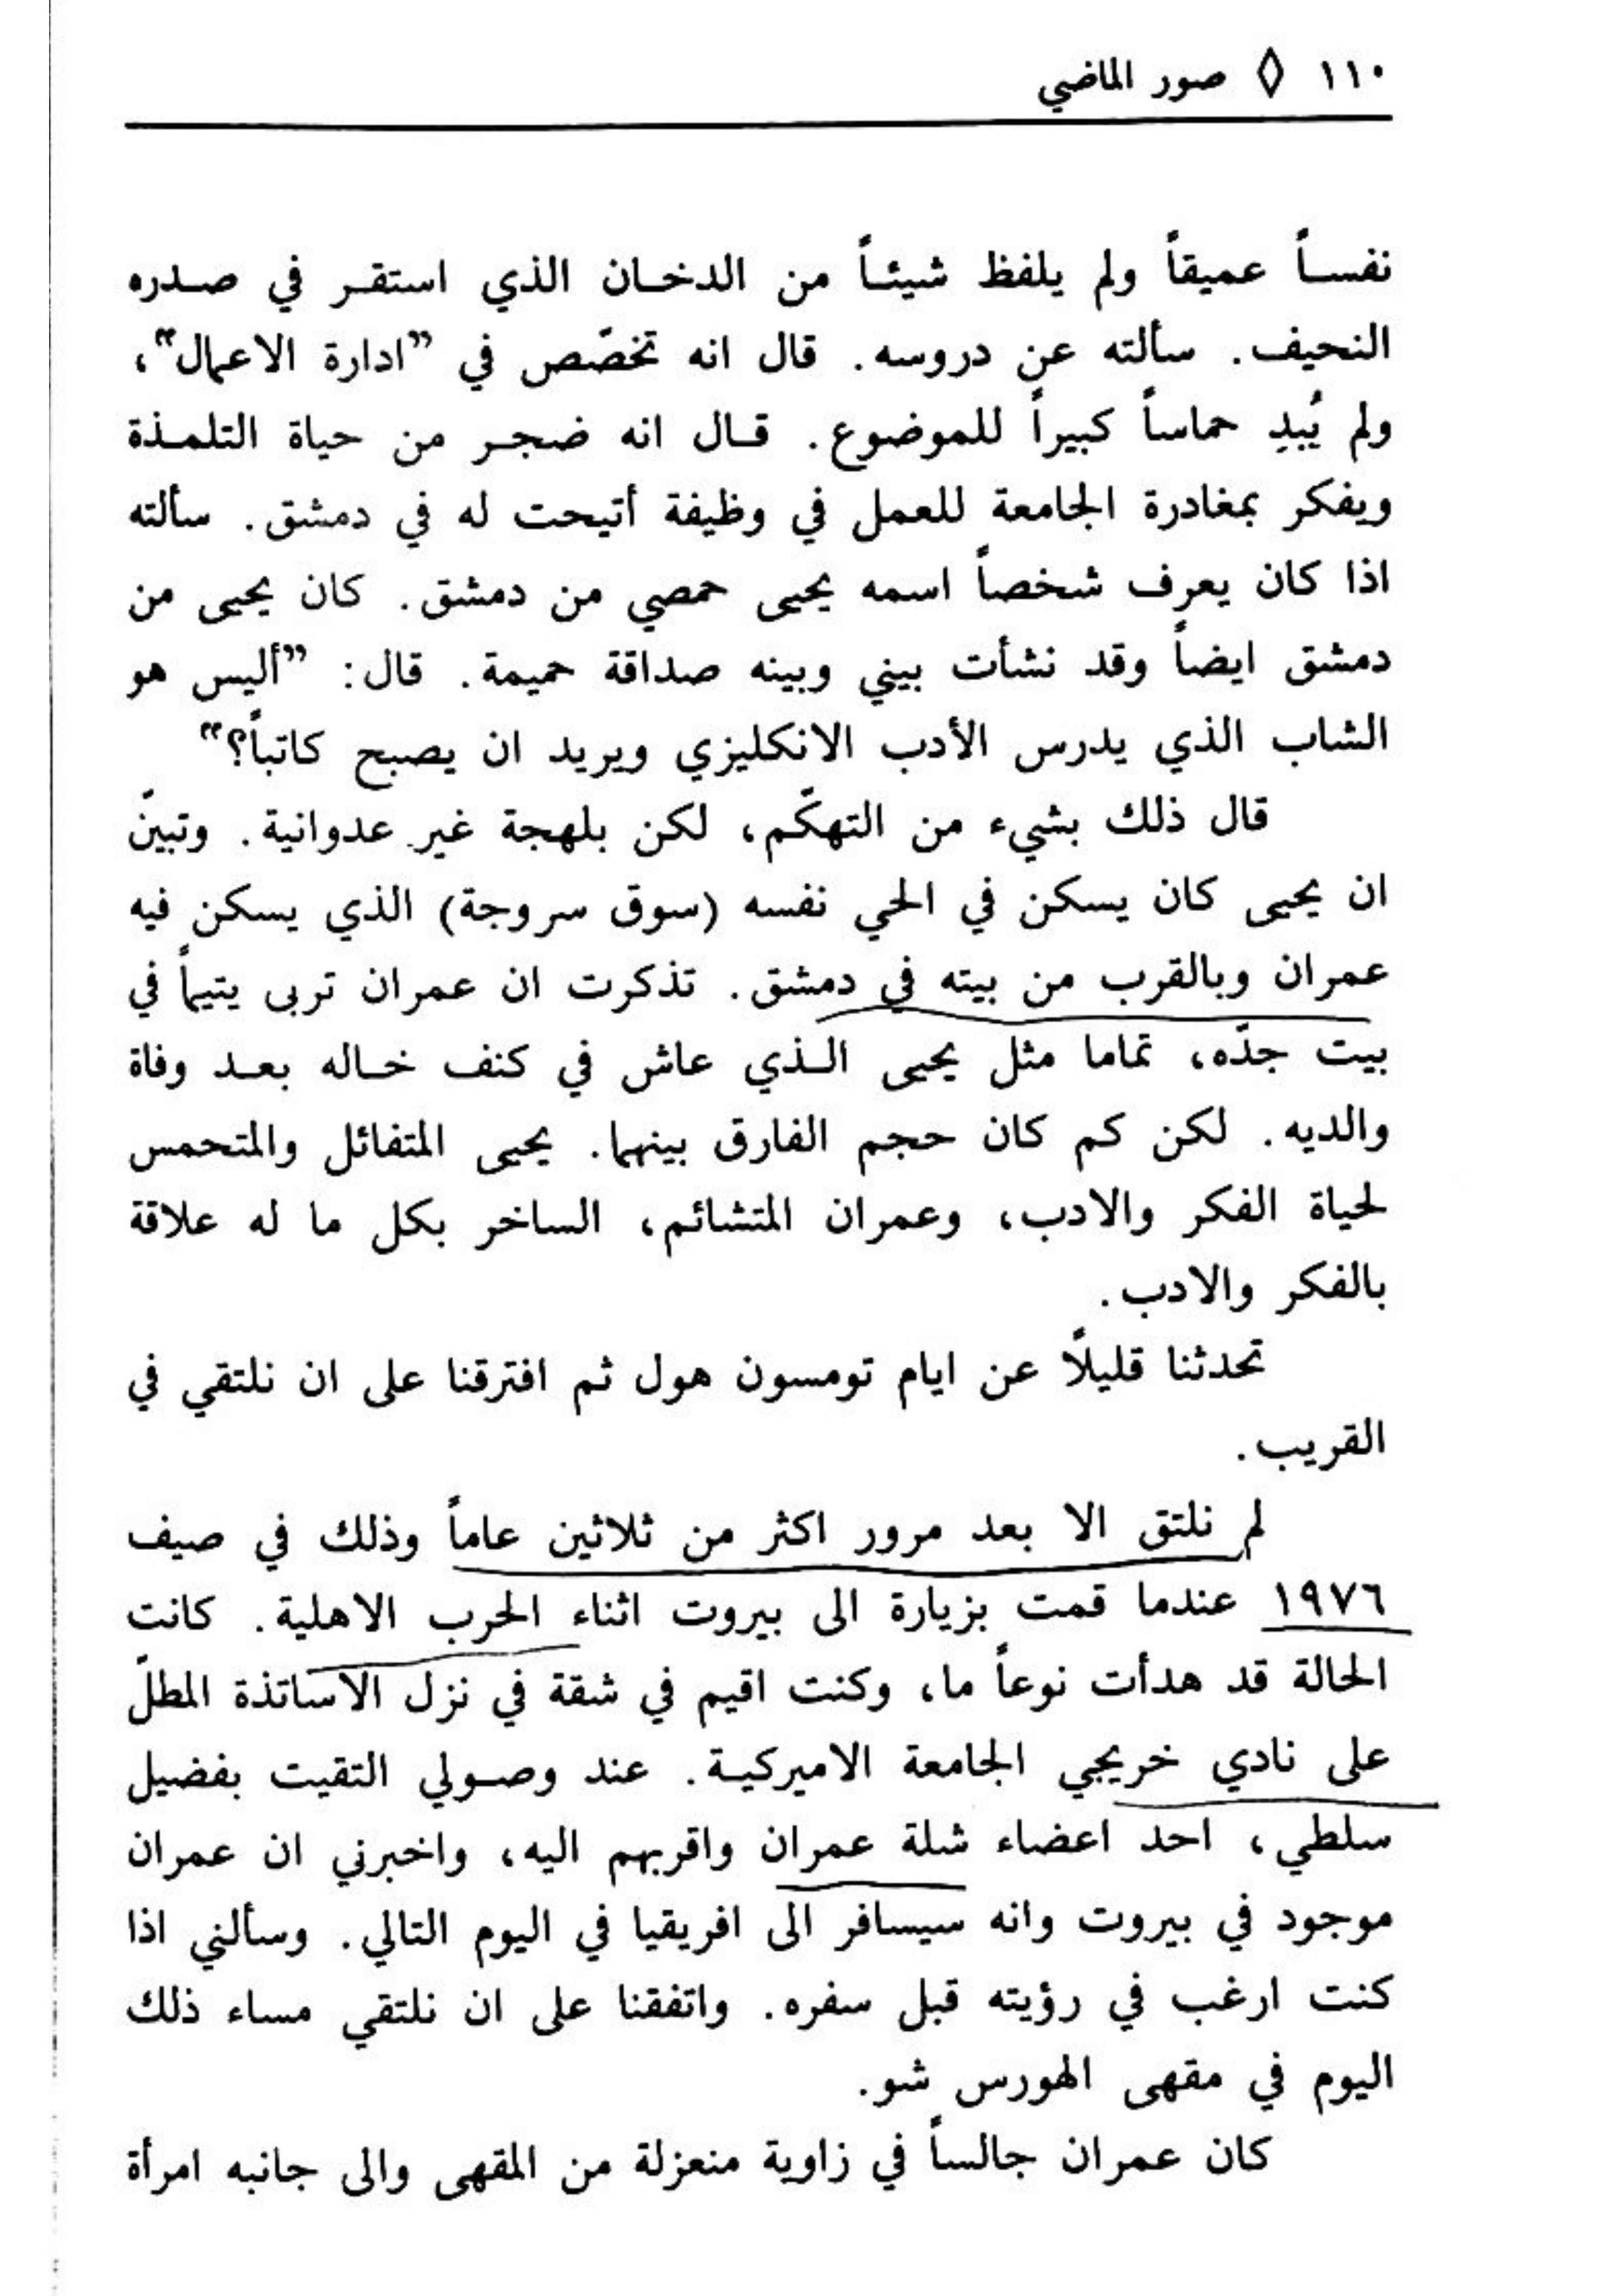 ١١٠ ◊ صور الماضي
نفساً عميقاً ولم يلفظ شيئاً من الدخان الذي استقر في صدره
النحيف. سألته عن دروسه. قال انه تخصّص في ”ادارة الاعمال“،
ولم يُبدِ حماساً كبيراً للموضوع. قال انه ضجر من حياة التلمذة
ويفكر بمغادرة الجامعة للعمل في وظيفة أتيحت له في دمشق. سألته
اذا كان يعرف شخصاً اسمه يحيى حمصي من دمشق. كان يحيى من
دمشق ايضاً وقد نشأت بيني وبينه صداقة حميمة. قال: ”أليس هو
الشاب الذي يدرس الأدب الانكليزي ويريد ان يصبح كاتباً؟“
قال ذلك بشيء من التهكّم، لكن بلهجة غير عدوانية. وتبينّ
ان يحيى كان يسكن في الحي نفسه (سوق سروجة) الذي يسكن فيه
عمران وبالقرب من بيته في دمشق. تذكرت ان عمران تربى يتيماً في
بيت جدّه، تماما مثل يحيى الذي عاش في كنف خاله بعد وفاة
والديه. لكن كم كان حجم الفارق بينهما. يحيى المتفائل والمتحمس
لحياة الفكر والادب، وعمران المتشائم، الساخر بكل ما له علاقة
بالفكر والادب.
تحدثنا قليلاً عن ايام تومسون هول ثم افترقنا على ان نلتقي في
القريب.
لم نلتق الا بعد مرور اكثر من ثلاثين عاماً وذلك في صيف
١٩٧٦ عندما قمت بزيارة الى بيروت اثناء الحرب الاهلية. كانت
الحالة قد هدأت نوعاً ما، وكنت اقيم في شقة في نزل الاساتذة المطلّ
على نادي خريجي الجامعة الاميركية. عند وصولي التقيت بفضيل
سلطي، احد اعضاء شلة عمران واقربهم اليه، واخبرني ان عمران
موجود في بيروت وانه سيسافر الى افريقيا في اليوم التالي. وسألني اذا
كنت ارغب في رؤيته قبل سفره. واتفقنا على ان نلتقي مساء ذلك
اليوم في مقهى الهورس شو.
كان عمران جالساً في زاوية منعزلة من المقهى والى جانبه امرأة